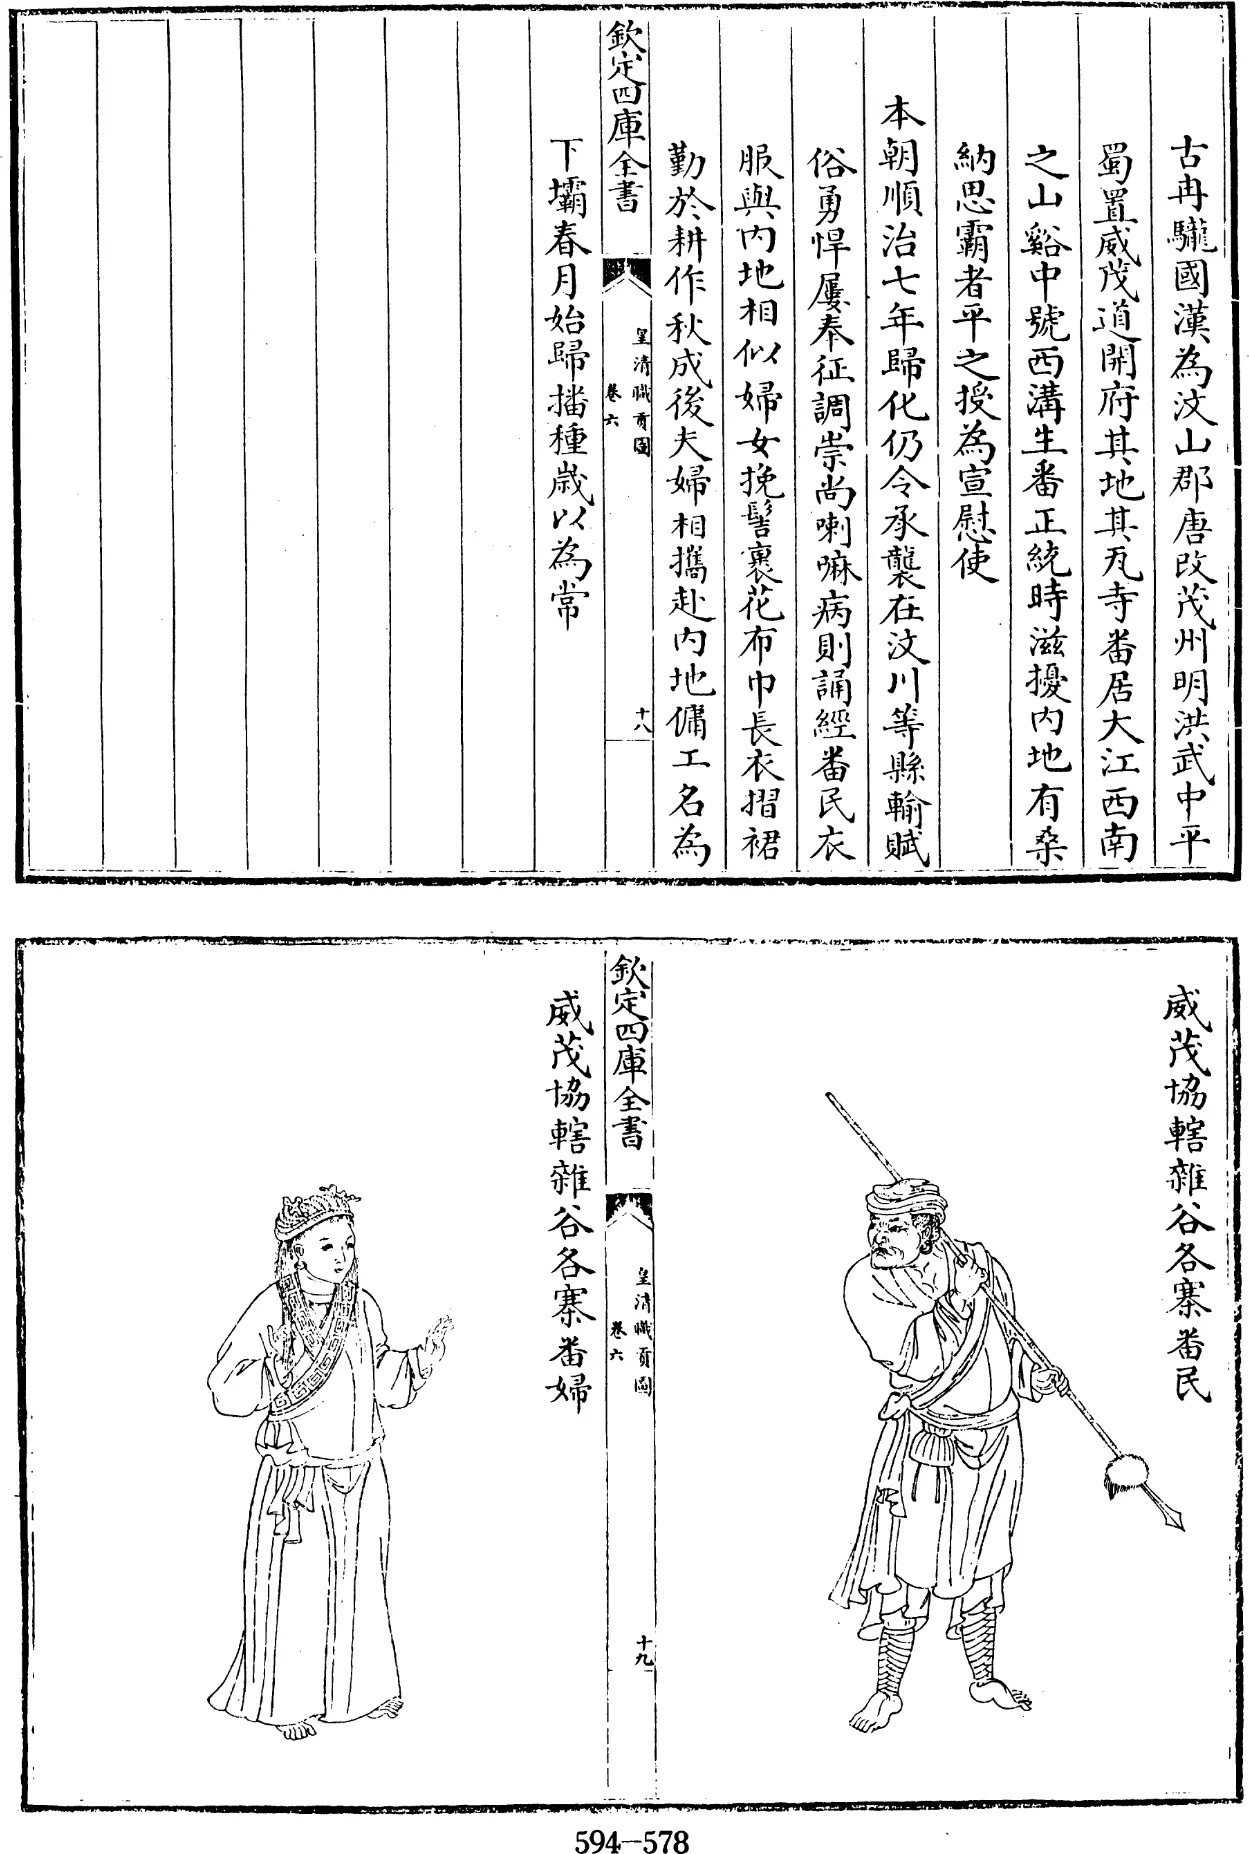 古冉駹國漢為汶山郡唐改茂州明洪武中平
蜀置威茂道開府其地其瓦寺番居大江西南
之山谿中號西溝生番正統時滋擾内地有桑
納思霸者平之授為宣慰使
本朝順治七年歸化仍令承襲在汶川等縣輸賦
俗勇悍屢奉征調崇尚喇嘛病則誦經番民衣
服與内地相似婦女挽髻裹花布巾長衣摺裙
勤於耕作秋成後夫婦相攜赴内地傭工名為
欽定四庫全書
皇清職貢圖
卷六
十八
下壩春月始歸播種歲以為常
威茂協轄雜谷各寨番民
欽定四庫全書
皇清職貢圖
卷六
十九
威茂協轄雜谷各寨番婦
594-578